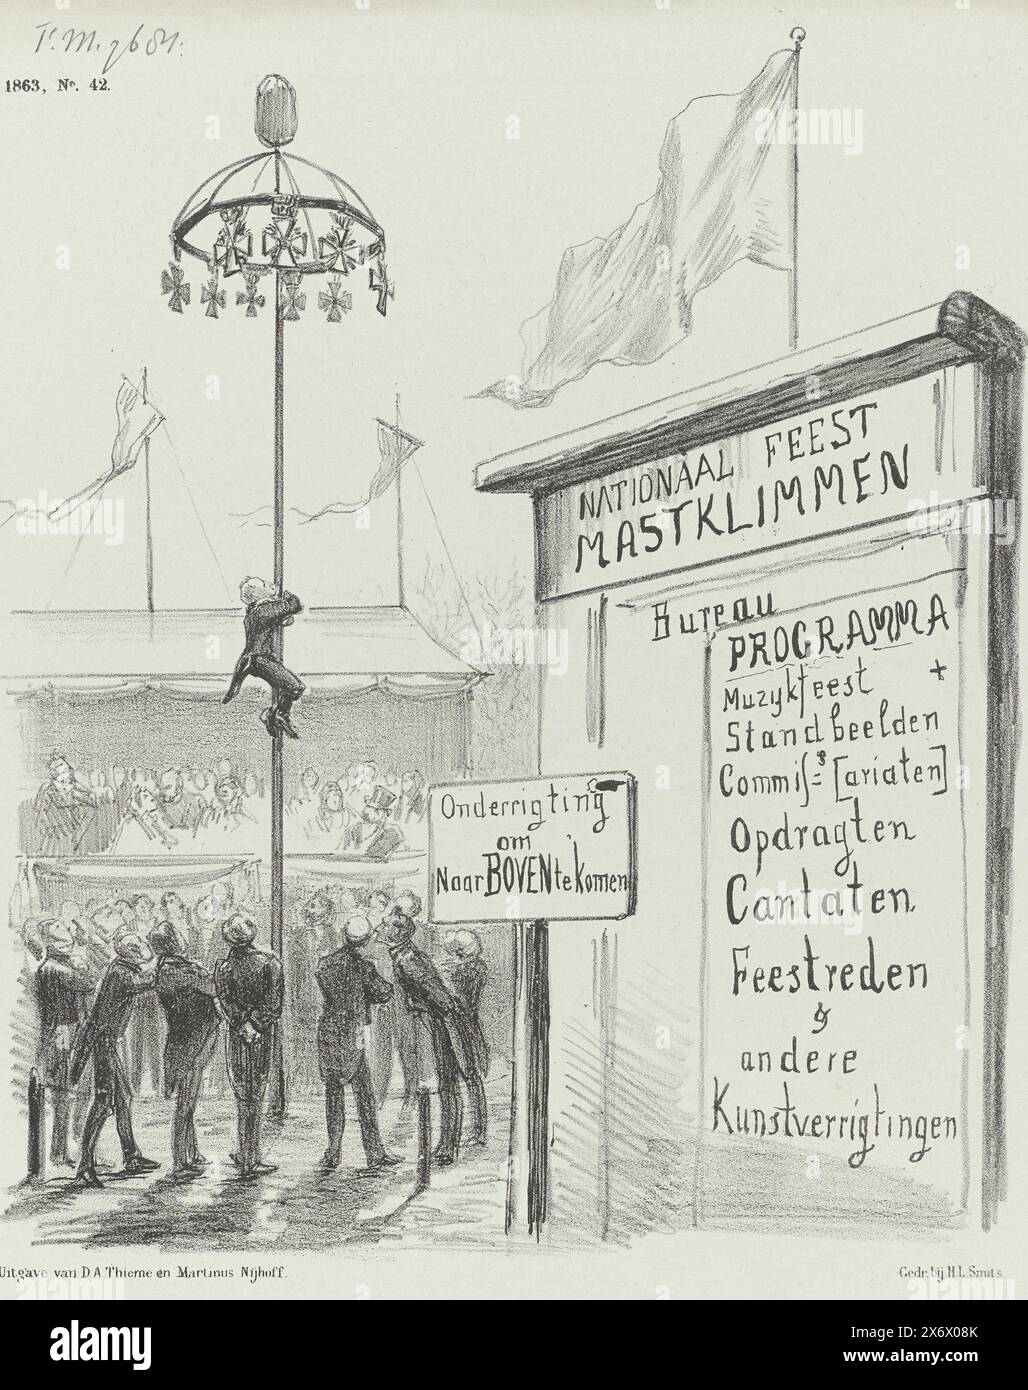 F.M. 7684.
1863, No. 42.
NATIONAAL FEEST
MASTKLIMMEN
Bureau
PROGRAMMA
Muzykfeest +
Standbeelden
Commiſ=s [ariaten]
Opdragten
Cantaten
Feestreden
&
andere
Kunstverrigtingen
Onderrigting
om
Naar BOVEN te komen
Uitgave van D A Thieme en Martinus Nijhoff.
Gedr. bij H.L. Smits
alamy
Image ID: 2X6X08K
www.alamy.com